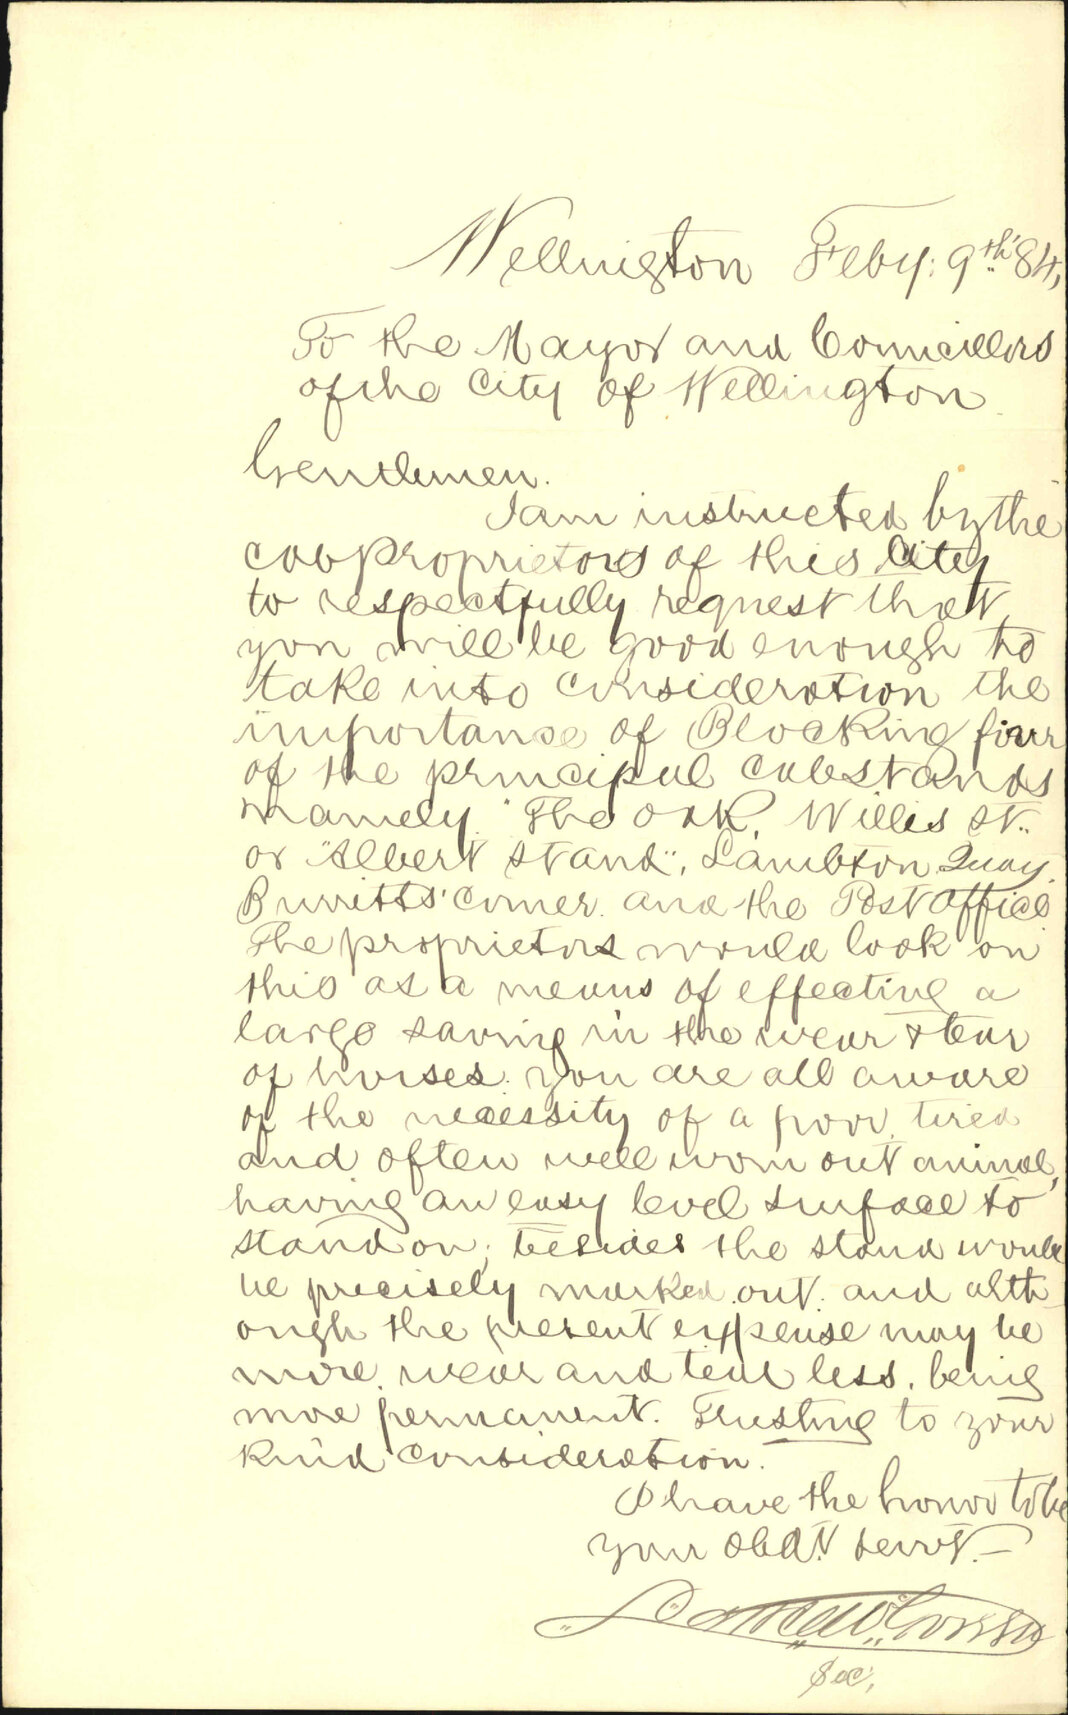 Wellington Feby: 9th 84,
To the Mayor and Councillors
of the City of Wellington
Gentlemen.
I am instructed by the
cab proprietors of this City
to respectfully request that
you will be good enough to
take into consideration the
importance of Blocking four
of the principal cabstands
namely "The Oak, Willis St."
or "Albert Stand", Lambton Quay.
Burretts' corner. and the Post Office
The proprietors would look on
this as a means of effecting a
large saving in the wear & tear
of horses. you are all aware
of the necessity of a poor, tired
and often well worn out animal,
having an easy level surface to
stand on; besides the stand would
be precisely marked out. and alth-
ough the present expense may be
more. wear and tear less, being
more permanent. Trusting to your
kind consideration.
I have the honor to be
your obdt. servt.—
Sec,